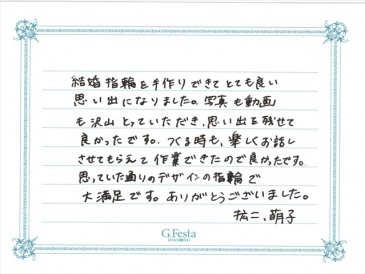 結婚指輪を手作りできてとても良い
思い出になりました。写真も動画
も沢山とっていただき、思い出を残せて
良かったです。つくる時も、楽しくお話し
させてもらえて作業できたので良かったです。
思っていた通りのデザインの指輪で
大満足です。ありがとうございました。
拡二、萌子
G.Festa
DIAMOND